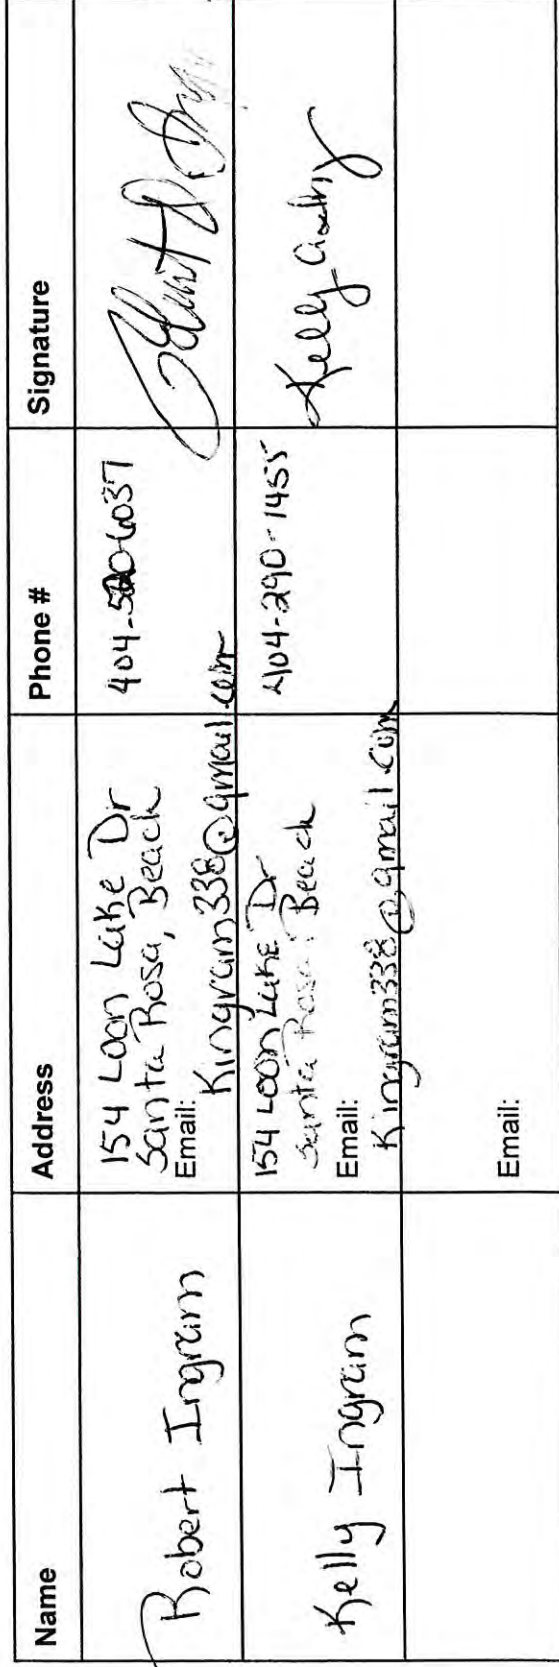 Name Address Phone # Signature
Robert Ingram
154 Loon Lake Dr
Santa Rosa, Beach
Email:
Kingram338@gmail.com
404-
Kelly Ingram
154 Loon Lake Dr
Santa Rosa, Beach
Email:
Kingram338@gmail.com
404-290-1455
Kelly
Email: